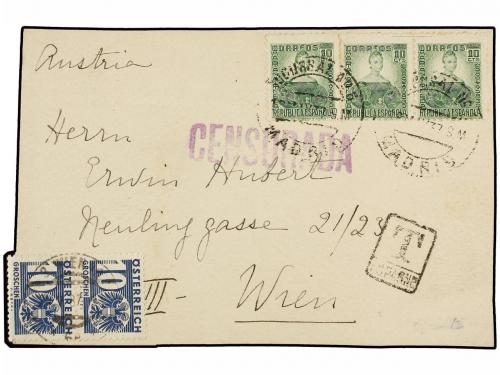 CORREOS CORREOS CORREOS
10 CTS 10 CTS 10 CTS
REPUBLICA ESPAÑOLA REPUBLICA ESPAÑOLA REPUBLICA ESPAÑOLA
MADRID MADRID
Austria
CENSURADA
Herrn
Erwin Hubert
Neulinggasse 21/23
T
III - Wien
WIEN
10 GROSCHEN ÖSTERREICH 10 GROSCHEN ÖSTERREICH